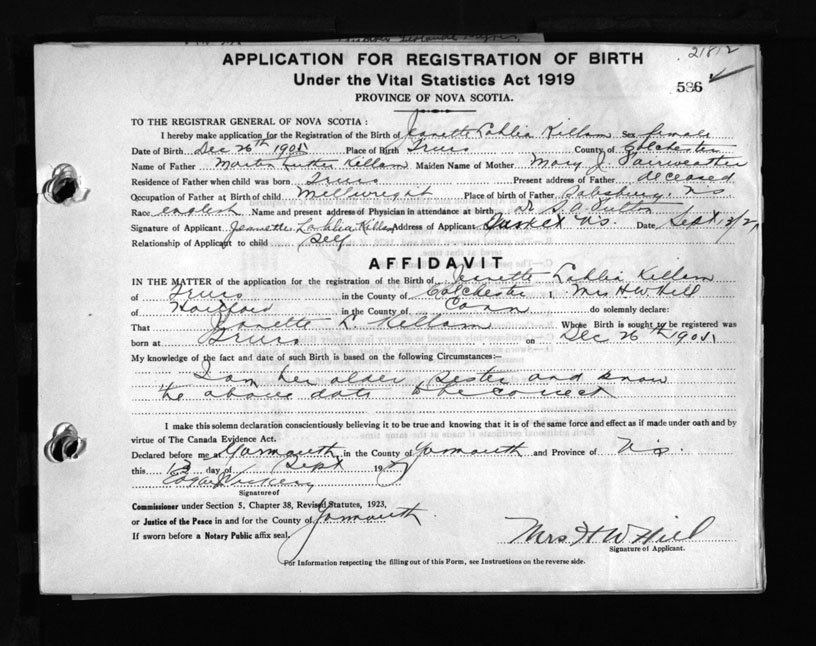 21812
APPLICATION FOR REGISTRATION OF BIRTH
Under the Vital Statistics Act 1919
536
PROVINCE OF NOVA SCOTIA.
TO THE REGISTRAR GENERAL OF NOVA SCOTIA :
I hereby make application for the Registration of the Birth of Jeanette Lahlia Killam Sex female
Date of Birth Dec 26th 1901 Place of Birth Truro County of Colchester
Name of Father Martin Luther Killam Maiden Name of Mother Mary J. Fairweather
Residence of Father when child was born Truro Present address of Father deceased
Occupation of Father at Birth of child Millwright Place of birth of Father Salisbury, N.S.
Race english Name and present address of Physician in attendance at birth dr S.A.
Signature of Applicant Jeanette Lahlia Killam Address of Applicant Tusket N.S. Date Sept
Relationship of Applicant to child Self
AFFIDAVIT
IN THE MATTER of the application for the registration of the Birth of Jeanette Lahlia Killam
of Truro in the County of Colchester I, Mrs H W Hill
of Hartford in the County of Conn do solemnly declare:
That Jeanette L. Killam Whose Birth is sought to be registered was
born at Truro on Dec 26th 1901
My knowledge of the fact and date of such Birth is based on the following Circumstances:—
I am her older sister and know
the above date to be correct
I make this solemn declaration conscientiously believing it to be true and knowing that it is of the same force and effect as if made under oath and by
virtue of The Canada Evidence Act.
Declared before me at Yarmouth in the County of Yarmouth and Province of N.S.
this 13 day of Sept 192
Signature of
Commissioner under Section 5, Chapter 38, Revised Statutes, 1923,
or Justice of the Peace in and for the County of Yarmouth
If sworn before a Notary Public affix seal.
Mrs H W Hill
Signature of Applicant.
For Information respecting the filling out of this Form, see Instructions on the reverse side.